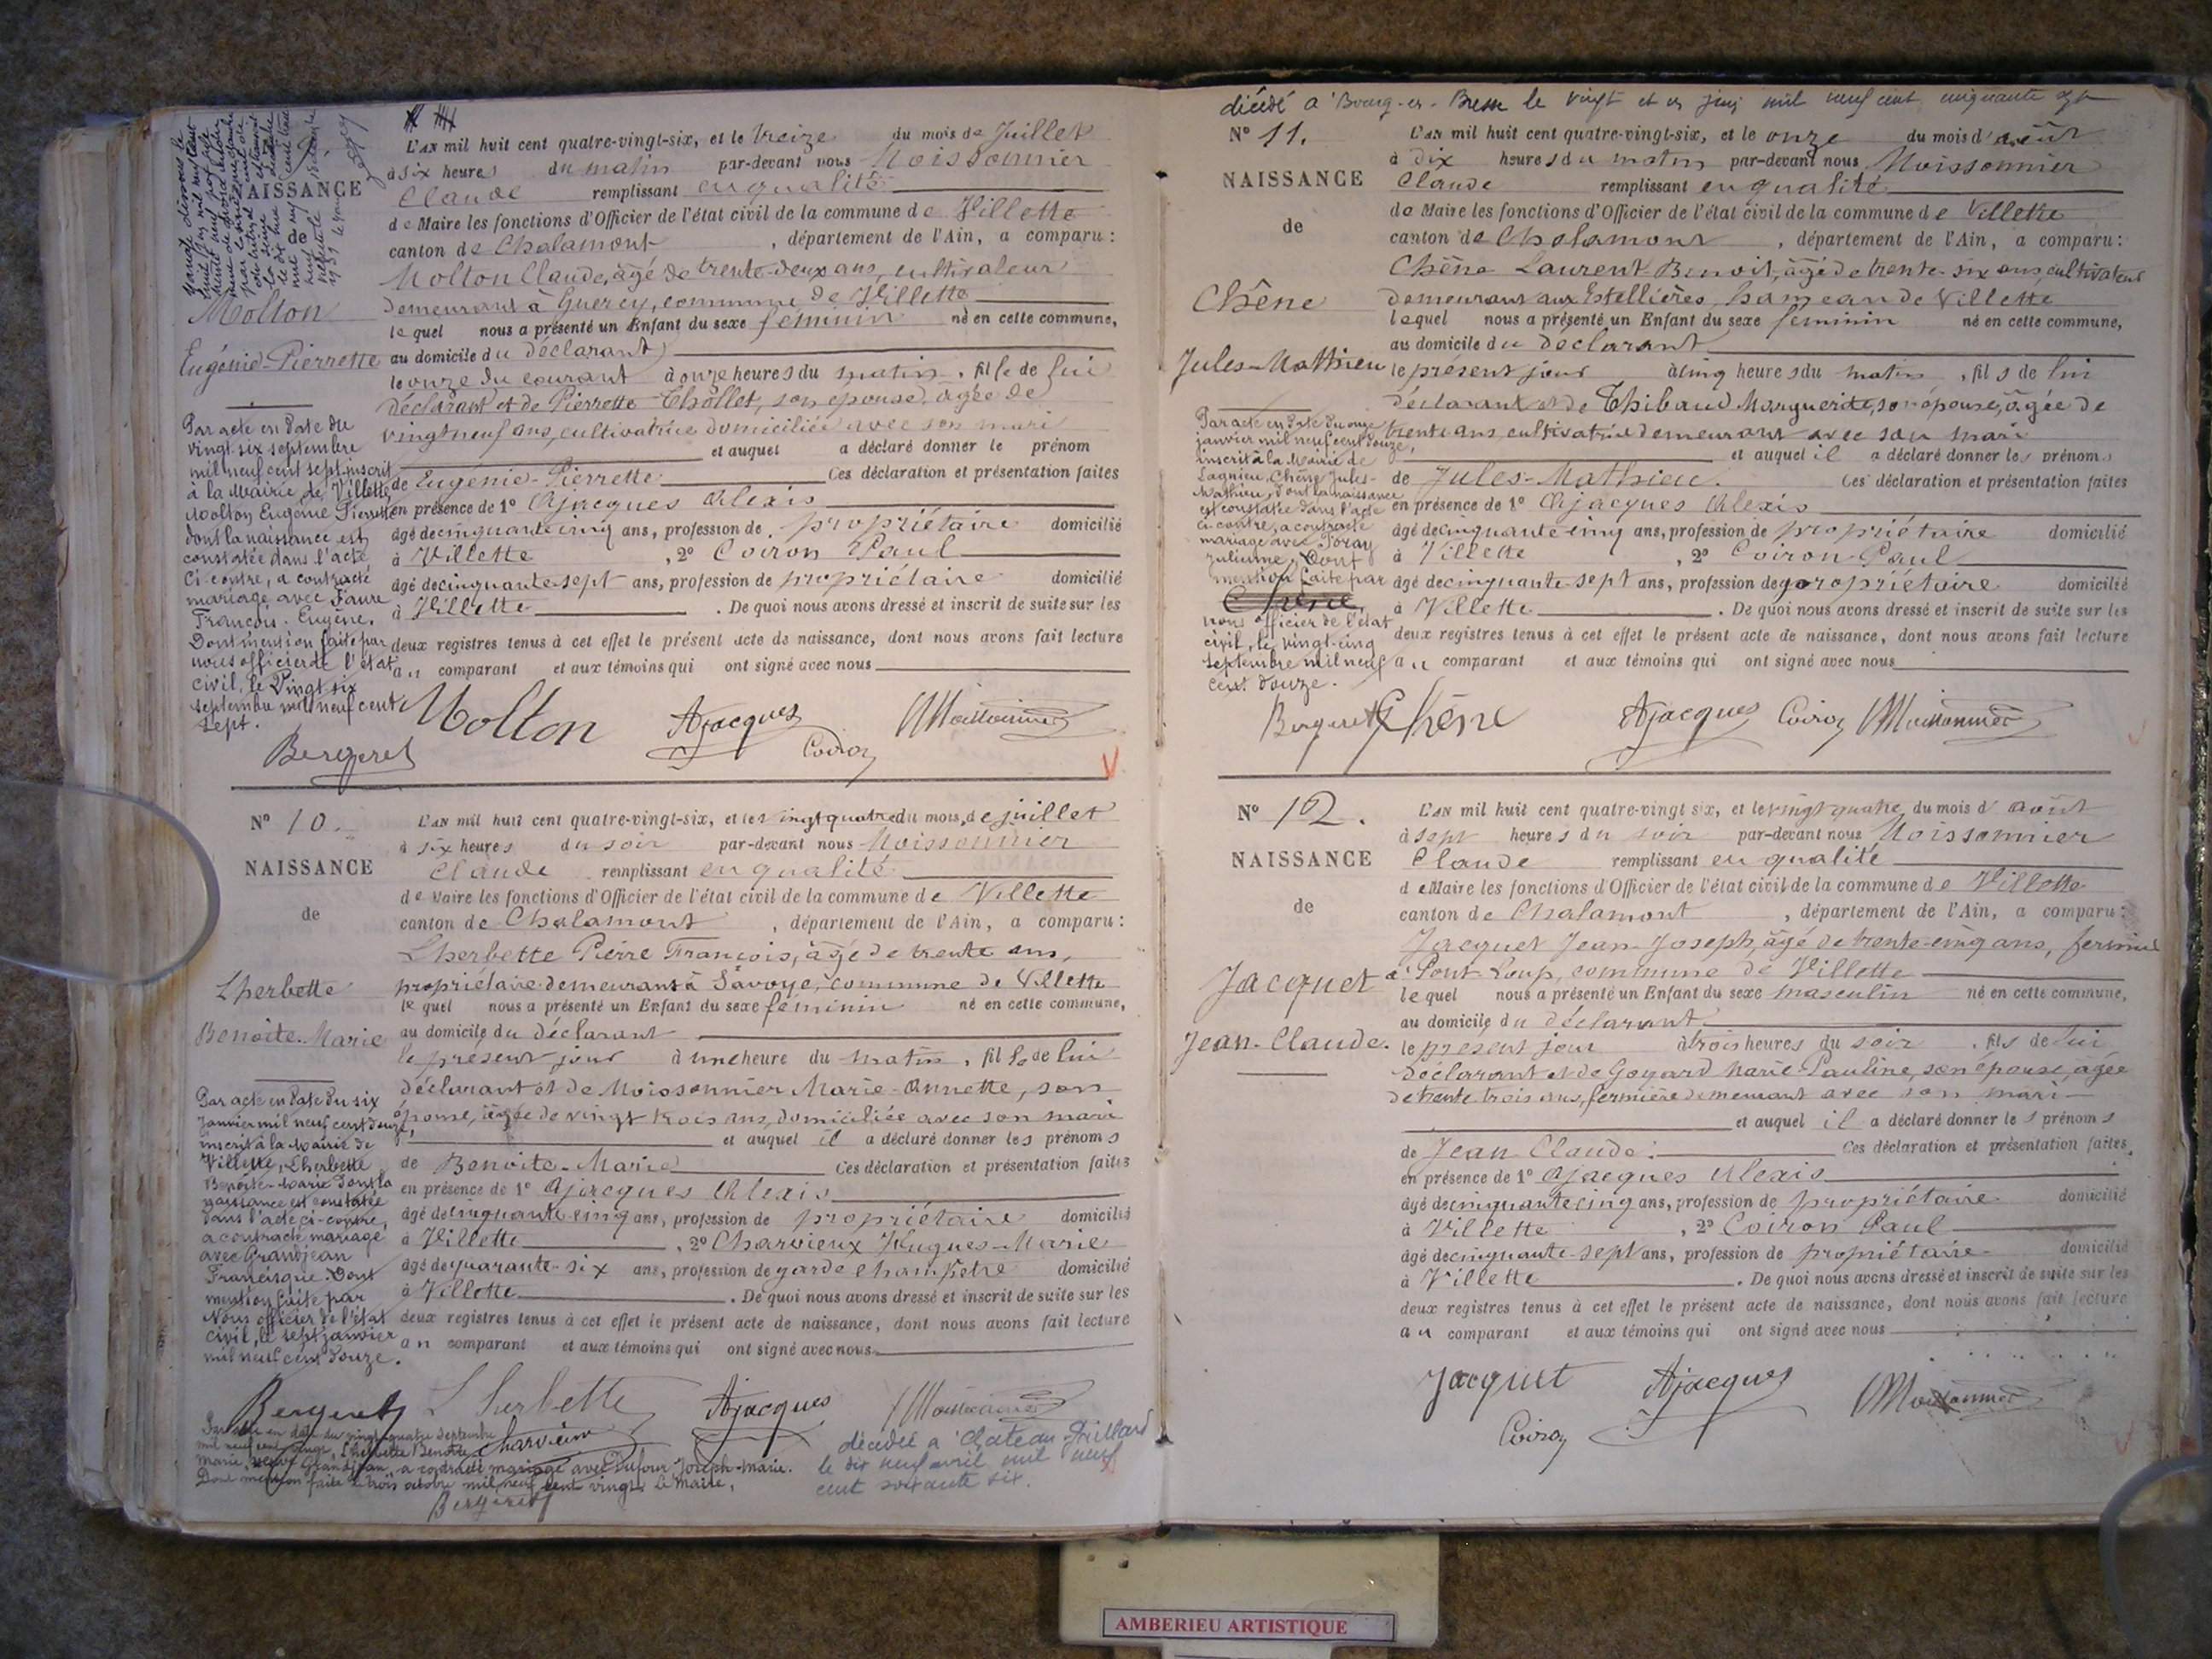 NAISSANCE
de
Molton
Eugénie-Pierrette
Par acte en date du
vingt six septembre
mil neuf cent sept inscrit
à la Mairie de Villette
Molton Eugénie Pierrette
dont la naissance est
constatée dans l'acte
ci-contre, a contracté
mariage avec Faure
François-Eugène.
Dont mention faite par
nous officier de l'état
civil, le Vingt six
septembre mil neuf cent
sept.
Bergeret
L'AN mil huit cent quatre-vingt-six, et le treize du mois de Juillet
à six heures du matin par-devant nous Moissonnier
Claude remplissant en qualité
de Maire les fonctions d'Officier de l'état civil de la commune de Villette
canton de Chalamont, département de l'Ain, a comparu:
Molton Claude, âgé de trente-deux ans, cultivateur
demeurant à Guerey, commune de Villette
lequel nous a présenté un Enfant du sexe féminin né en cette commune,
au domicile du déclarant
le onze du courant à onze heures du matin, fille de lui
déclarant et de Pierrette Chollet, son épouse âgée de
vingt neuf ans, cultivatrice domiciliée avec son mari
et auquel a déclaré donner le prénom
de Eugénie-Pierrette Ces déclaration et présentation faites
en présence de 1º Ajacques Alexis
âgé de cinquante cinq ans, profession de propriétaire domicilié
à Villette, 2º Coiron Paul
âgé de cinquante-sept ans, profession de propriétaire domicilié
à Villette. De quoi nous avons dressé et inscrit de suite sur les
deux registres tenus à cet effet le présent acte de naissance, dont nous avons fait lecture
au comparant et aux témoins qui ont signé avec nous
Molton Ajacques Coiron CMoissonnier
Nº 10.
NAISSANCE
de
Lherbette
Benoite-Marie
Par acte en date du six
janvier mil neuf cent douze,
inscrit à la Mairie de
Villette, Lherbette
Benoite-Marie dont la
naissance est constatée
dans l'acte ci-contre,
a contracté mariage
avec Grandjean
Francisque. Dont
mention faite par
Nous officier de l'état
civil, le sept janvier
mil neuf cent douze.
L'AN mil huit cent quatre-vingt-six, et le vingt quatre du mois de juillet
à six heures du soir par-devant nous Moissonnier
Claude remplissant en qualité
de Maire les fonctions d'Officier de l'état civil de la commune de Villette
canton de Chalamont, département de l'Ain, a comparu:
Lherbette Pierre François, âgé de trente ans,
propriétaire demeurant à Savoye, commune de Villette
lequel nous a présenté un Enfant du sexe féminin né en cette commune,
au domicile du déclarant
le présent jour à une heure du matin, fille de lui
déclarant et de Moissonnier Marie-Annette, son
épouse, âgée de vingt trois ans, domiciliée avec son mari
et auquel il a déclaré donner les prénoms
de Benoite-Marie Ces déclaration et présentation faites
en présence de 1º Ajacques Alexis
âgé de cinquante cinq ans, profession de propriétaire domicilié
à Villette, 2º Charvieux Hugues-Marie
âgé de quarante-six ans, profession de garde champêtre domicilié
à Villette. De quoi nous avons dressé et inscrit de suite sur les
deux registres tenus à cet effet le présent acte de naissance, dont nous avons fait lecture
au comparant et aux témoins qui ont signé avec nous
Bergeret Lherbette Ajacques CMoissonnier
Charvieux
en date du vingt quatre septembre
mil neuf cent vingt, Lherbette Benoite
Marie, veuve Grandjean, a contracté mariage avec Dufour Joseph-Marie.
Dont mention faite le trois octobre mil neuf cent vingt. Le Maire,
Bergeret
décédée à Chateau-Gaillard
le dix neuf avril mil neuf
cent soixante six.
décédé à Bourg-en-Bresse le vingt et un juin mil neuf cent cinquante
Nº 11.
NAISSANCE
de
Chêne
Jules-Mathieu
Par acte en date du onze
janvier mil neuf cent douze,
inscrit à la Mairie de
Lagnieu, Chêne Jules-
Mathieu, dont la naissance
est constatée dans l'acte
ci-contre, a contracté
mariage avec Foray
Julienne. Dont
mention faite par
nous officier de l'état
civil, le vingt-cinq
septembre mil neuf
cent douze.
L'AN mil huit cent quatre-vingt-six, et le onze du mois d'août
à dix heures du matin par-devant nous Moissonnier
Claude remplissant en qualité
de Maire les fonctions d'Officier de l'état civil de la commune de Villette
canton de Chalamont, département de l'Ain, a comparu:
Chêne Laurent-Benoit, âgé de trente-six ans, cultivateur
demeurant aux Estellières, hameau de Villette
lequel nous a présenté un Enfant du sexe féminin né en cette commune,
au domicile du déclarant
le présent jour à cinq heures du matin, fils de lui
déclarant et de Thibaud Marguerite, son épouse, âgée de
trente ans, cultivatrice demeurant avec son mari
et auquel il a déclaré donner les prénoms
de Jules-Mathieu. Ces déclaration et présentation faites
en présence de 1º Ajacques Alexis
âgé de cinquante cinq ans, profession de propriétaire domicilié
à Villette, 2º Coiron Paul
âgé de cinquante-sept ans, profession de propriétaire domicilié
à Villette. De quoi nous avons dressé et inscrit de suite sur les
deux registres tenus à cet effet le présent acte de naissance, dont nous avons fait lecture
au comparant et aux témoins qui ont signé avec nous
Bergeret Chêne Ajacques Coiron CMoissonnier
Nº 12.
NAISSANCE
de
Jacquet
Jean-Claude.
L'AN mil huit cent quatre-vingt six, et le vingt quatre du mois d'août
à sept heures du soir par-devant nous Moissonnier
Claude remplissant en qualité
de Maire les fonctions d'Officier de l'état civil de la commune de Villette
canton de Chalamont, département de l'Ain, a comparu:
Jacquet Jean-Joseph, âgé de trente-cinq ans, fermier
à Pont-Loup, commune de Villette
lequel nous a présenté un Enfant du sexe masculin né en cette commune,
au domicile du déclarant
le présent jour à trois heures du soir, fils de lui
déclarant et de Goyard Marie-Pauline, son épouse, âgée
de trente trois ans, fermière demeurant avec son mari
et auquel il a déclaré donner les prénoms
de Jean Claude. Ces déclaration et présentation faites
en présence de 1º Ajacques Alexis
âgé de cinquante cinq ans, profession de propriétaire domicilié
à Villette, 2º Coiron Paul
âgé de cinquante-sept ans, profession de propriétaire domicilié
à Villette. De quoi nous avons dressé et inscrit de suite sur les
deux registres tenus à cet effet le présent acte de naissance, dont nous avons fait lecture
au comparant et aux témoins qui ont signé avec nous
Jacquet Ajacques CMoissonnier
Coiron
AMBERIEU ARTISTIQUE